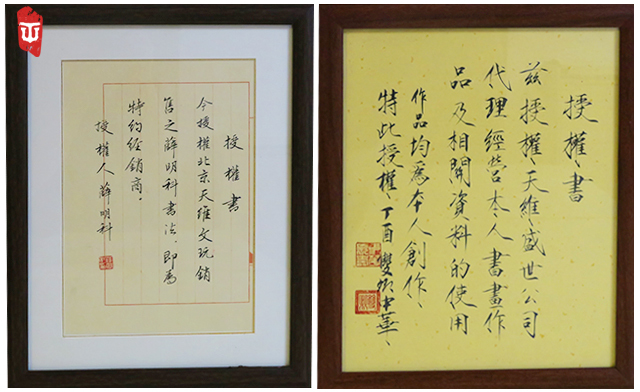 授權書
今授權北京天維文玩銷
售之薛明科書法、即為
特約經銷商。
授權人薛明科
授權書
茲授權天維盛世公司
代理經營本人書畫作
品及相關資料的使用
作品均為本人創作、
特此授權、丁酉 中華